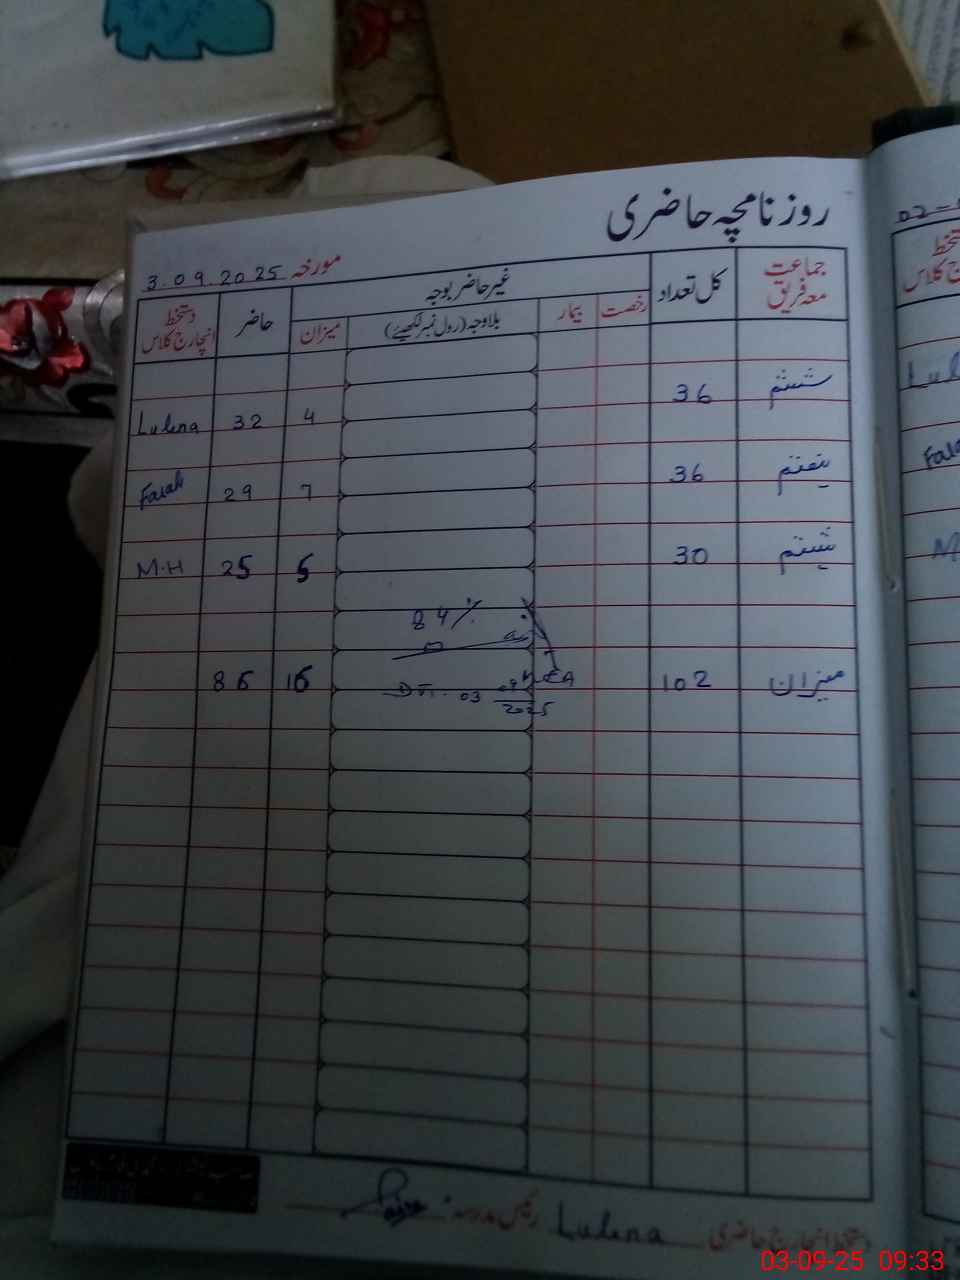 روزنامچہ حاضری
مورخہ 3.09.2025
جماعت معہ فریق کل تعداد غیر حاضر بوجہ حاضر دستخط انچارج کلاس
رخصت بیمار بلاوجہ (رول نمبر لکھیئے) میزان
ششم 36 4 32 Lubna
ہفتم 36 7 29 Farah
ہشتم 30 5 25 M.H
84%
میزان 102 16 86
DT. 03 09 2025
دستخط انچارج حاضری Lubna رئیس مدرسہ
02-
دستخط
انچارج کلاس
03-09-25 09:33